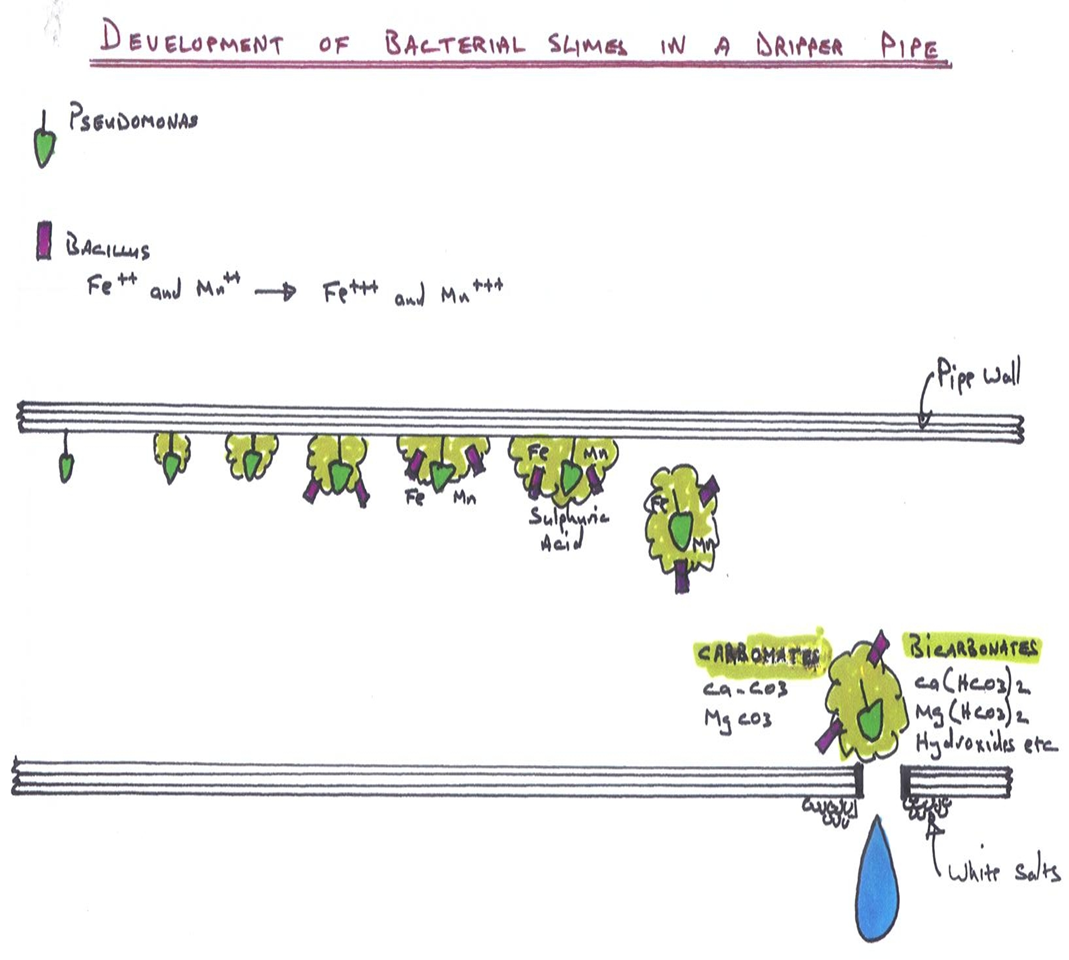 DEVELOPMENT OF BACTERIAL SLIMES IN A DRIPPER PIPE
PSEUDOMONAS
BACILLUS
Fe++ and Mn++ → Fe+++ and Mn+++
Pipe Wall
Fe Mn
Fe Mn
Sulphuric
Acid
Fe
Mn
CARBOMATES
Ca-CO3
MgCO3
BiCARBONATES
Ca(HCO3)2
Mg(HCO3)2
Hydroxides etc
White Salts